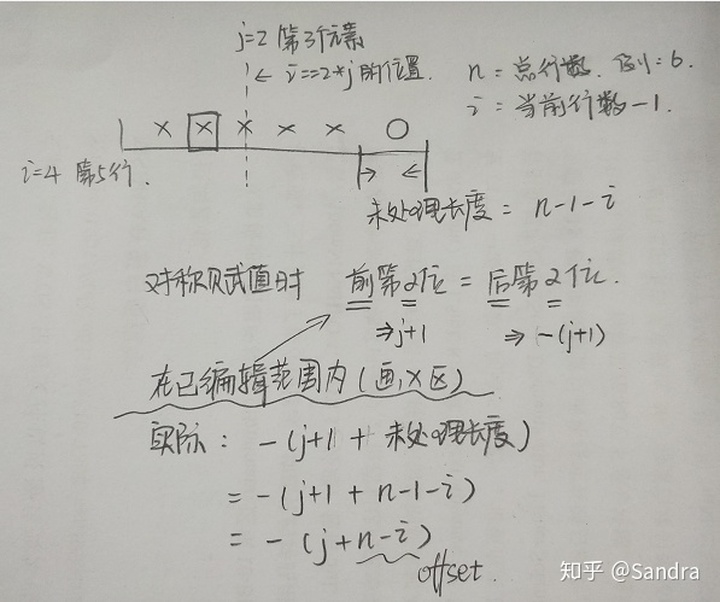 j=2 第3个元素
← i==2*j 的位置.
n = 总行数. 例: 6.
i = 当前行数-1.
| × × × × × ○
i=4 第5行.
→ ←
未处理长度 = n-1-i
对称赋值时 前第2位 = 后第2位.
⇒j+1 ⇒ -(j+1)
在已编辑范围内(画×区)
实际: -(j+1 + 未处理长度)
= -(j+1 + n-1-i)
= -(j+n-i)
offset.
知乎 @Sandra